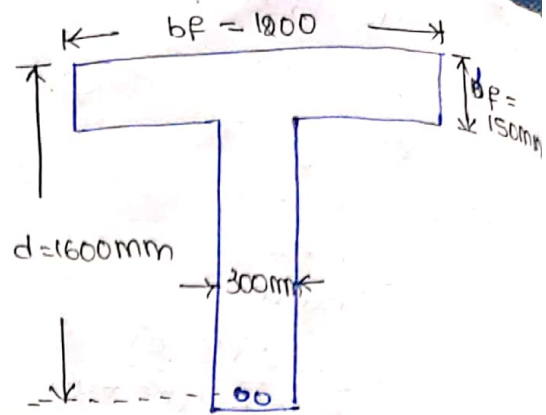 bf = 1200
Df =
150mm
d=1600mm
300m